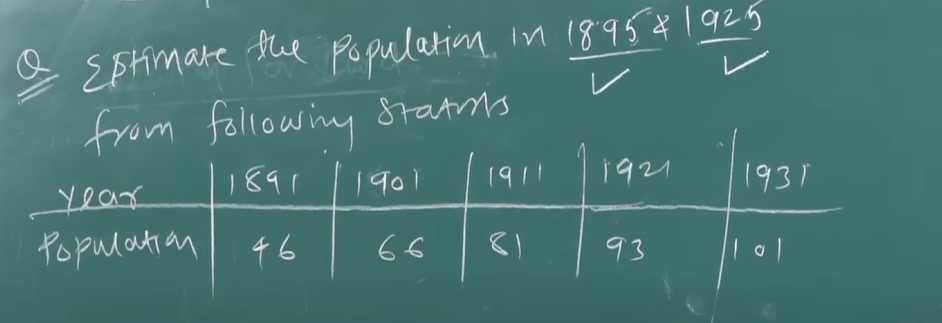 Q Estimate the Population in 1895 & 1925
from following
year 1891 1901 1911 1921 1931
Population 46 66 81 93 101